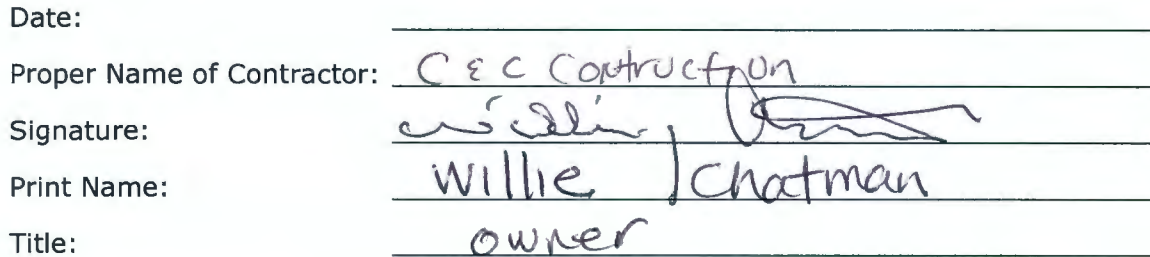 Date:
Proper Name of Contractor: C & C Contruction
Signature:
Print Name: Willie Chatman
Title: owner